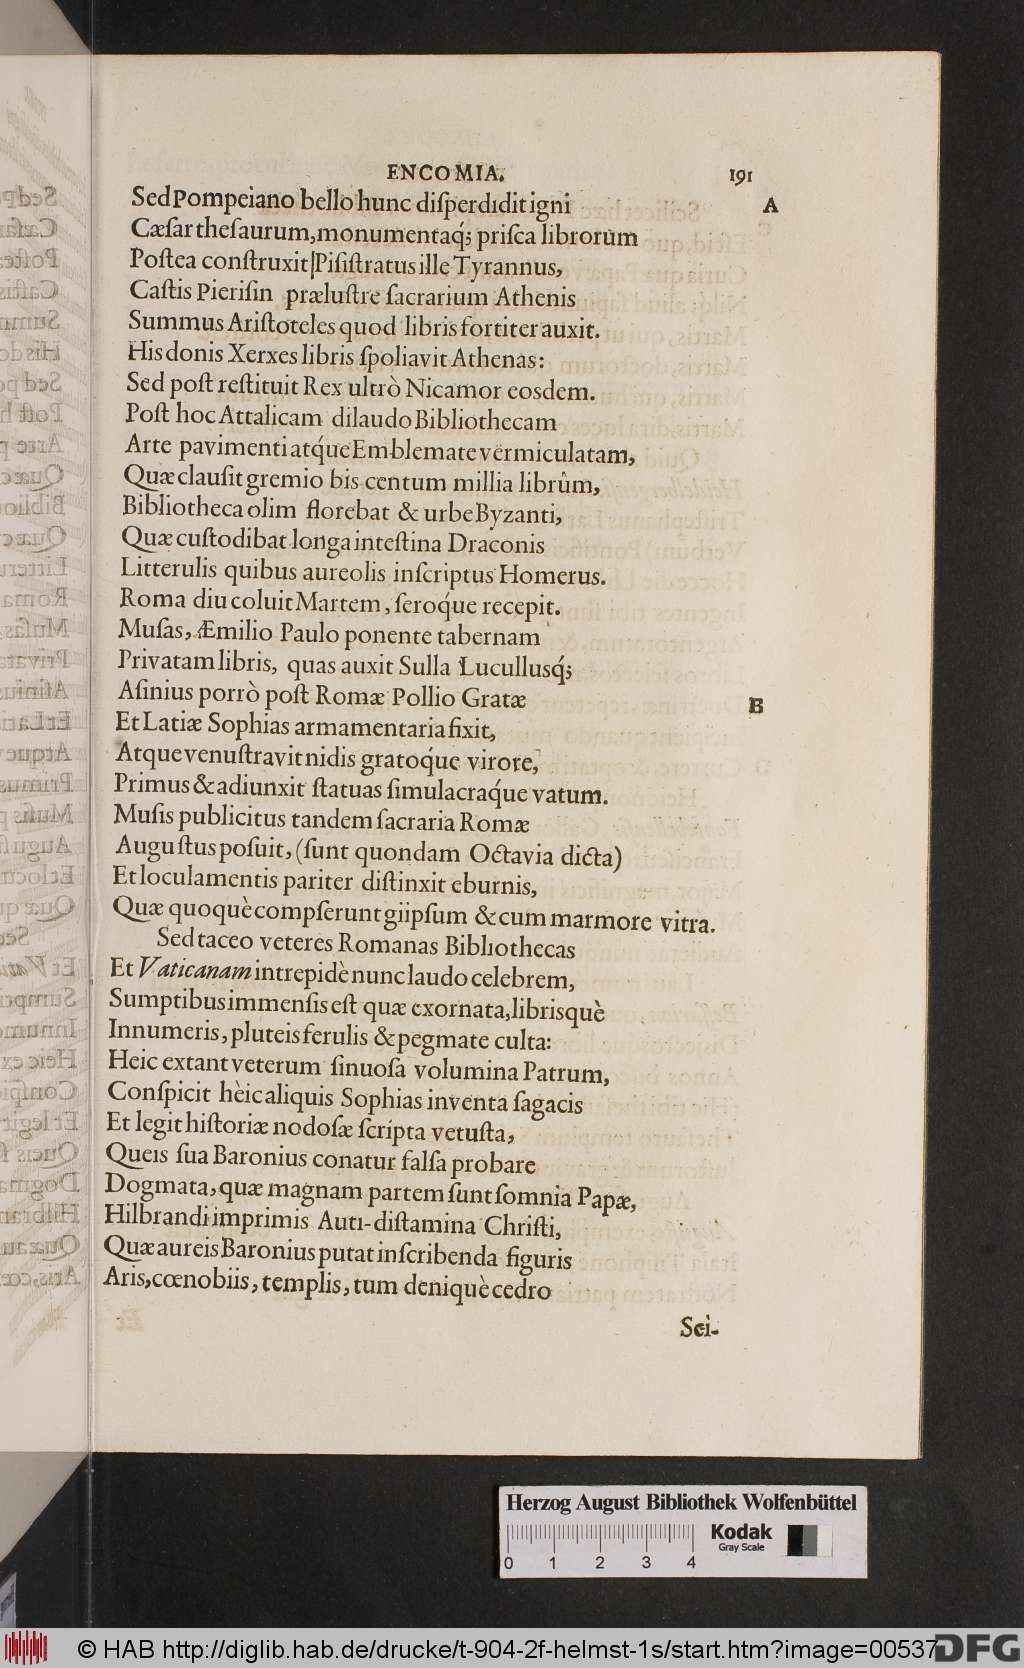 ENCOMIA. 191
Sed Pompeiano bello hunc diſperdidit igni A
Cæſar theſaurum, monumentaq́; priſca librorum
Poſtea conſtruxit Piſiſtratus ille Tyrannus,
Caſtis Pieriſin præluſtre ſacrarium Athenis
Summus Ariſtoteles quod libris fortiter auxit.
His donis Xerxes libris ſpoliavit Athenas:
Sed poſt reſtituit Rex ultrò Nicamor eosdem.
Poſt hoc Attalicam dilaudo Bibliothecam
Arte pavimenti atq́ue Emblemate vermiculatam,
Quæ clauſit gremio bis centum millia librûm,
Bibliotheca olim florebat & urbe Byzanti,
Quæ cuſtodibat longa inteſtina Draconis
Litterulis quibus aureolis inſcriptus Homerus.
Roma diu coluit Martem, ſeroq́ue recepit.
Muſas, Æmilio Paulo ponente tabernam
Privatam libris, quas auxit Sulla Lucullusq́;
Aſinius porrò poſt Romæ Pollio Gratæ B
Et Latiæ Sophias armamentaria fixit,
Atque venuſtravit nidis gratoq́ue virore,
Primus & adiunxit ſtatuas ſimulacraq́ue vatum.
Muſis publicitus tandem ſacraria Romæ
Auguſtus poſuit, (ſunt quondam Octavia dicta)
Et loculamentis pariter diſtinxit eburnis,
Quæ quoquè compſerunt giipſum & cum marmore vitra.
Sed taceo veteres Romanas Bibliothecas
Et Vaticanam intrepidè nunc laudo celebrem,
Sumptibus immenſis eſt quæ exornata, librisquè
Innumeris, pluteis ferulis & pegmate culta:
Heic extant veterum ſinuoſa volumina Patrum,
Conſpicit hèic aliquis Sophias inventa ſagacis
Et legit hiſtoriæ nodoſæ ſcripta vetuſta,
Queis ſua Baronius conatur falſa probare
Dogmata, quæ magnam partem ſunt ſomnia Papæ,
Hilbrandi imprimis Auti-diſtamina Chriſti,
Quæ aureis Baronius putat inſcribenda figuris
Aris, cœnobiis, templis, tum deniquè cedro
Sci-
Herzog August Bibliothek Wolfenbüttel
Kodak
Gray Scale
0 1 2 3 4
© HAB http://diglib.hab.de/drucke/t-904-2f-helmst-1s/start.htm?image=00537
DFG